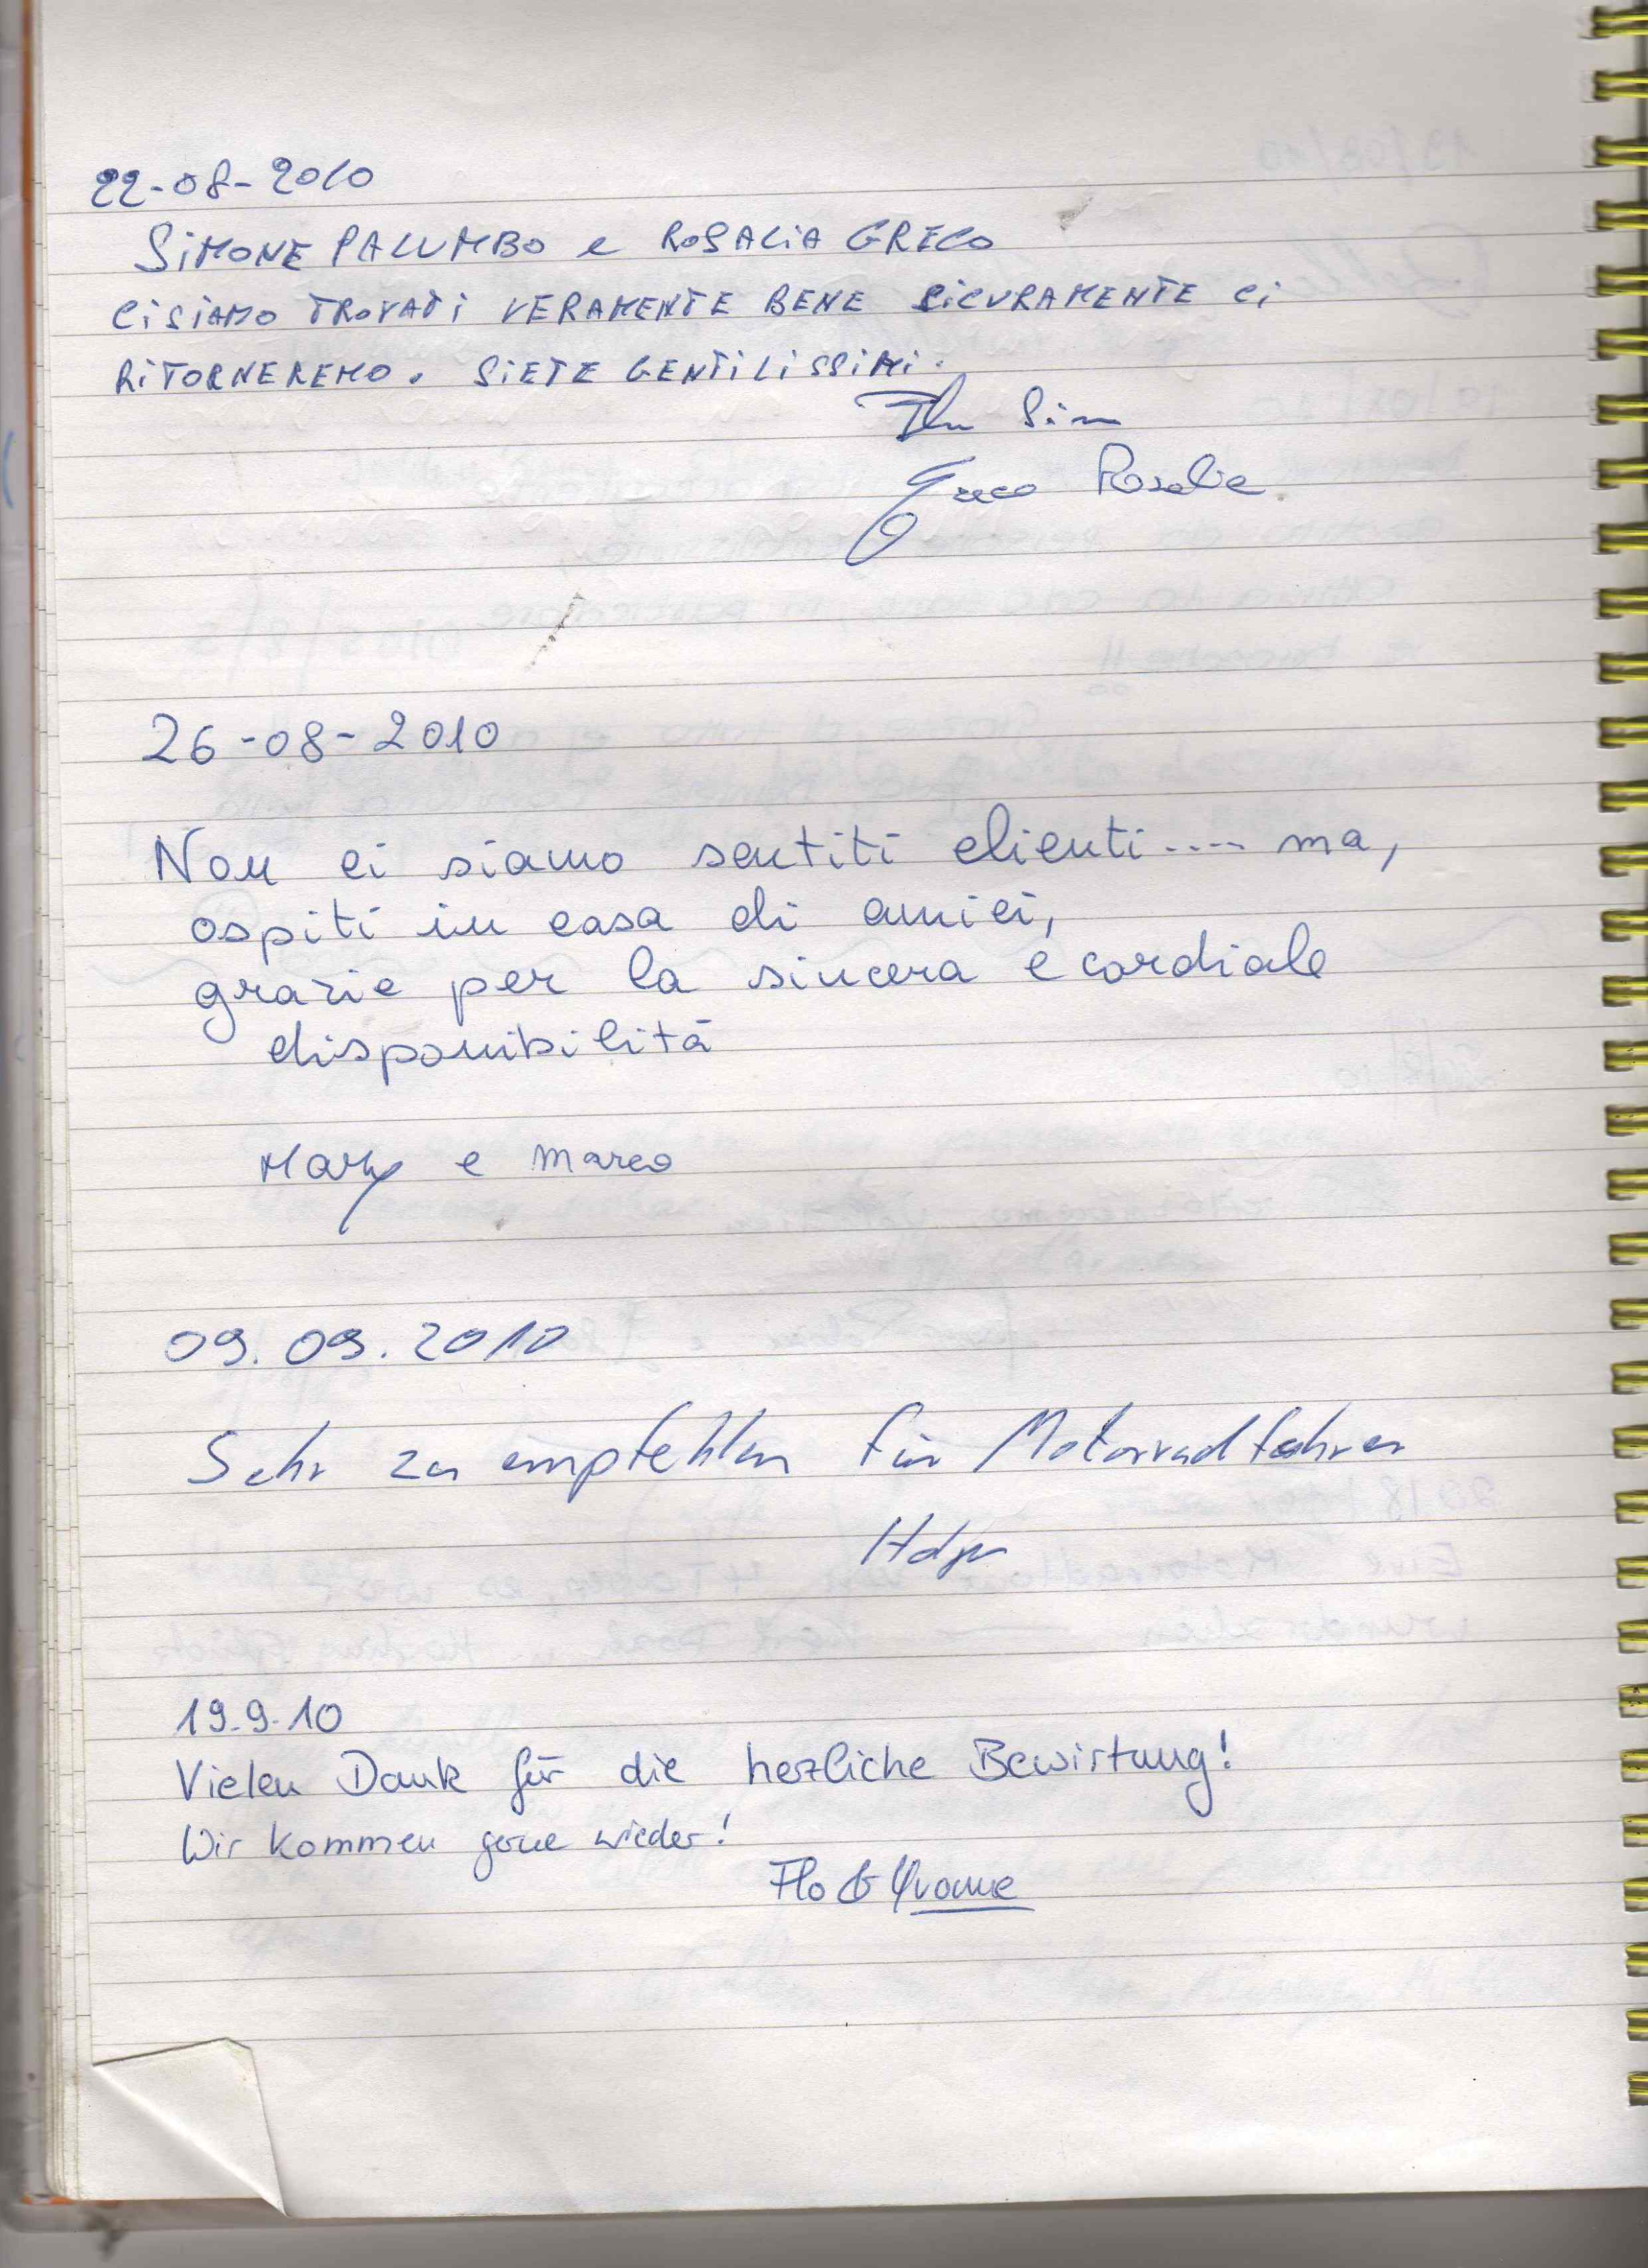 22-08-2010
SIMONE PALUMBO e ROSALIA GRECO
CI SIAMO TROVATI VERAMENTE BENE SICURAMENTE CI
RITORNEREMO. SIETE GENTILISSIMI.
Sim
Greco Rosalia
26-08-2010
Non ci siamo sentiti clienti.... ma,
ospiti in casa di amici,
grazie per la sincera e cordiale
disponibilità
Mary e Marco
09.09.2010
Sehr zu empfehlen für Motorradfahrer
19.9.10
Vielen Dank für die herzliche Bewirtung!
Wir kommen gerne wieder!
Flo & Yvonne